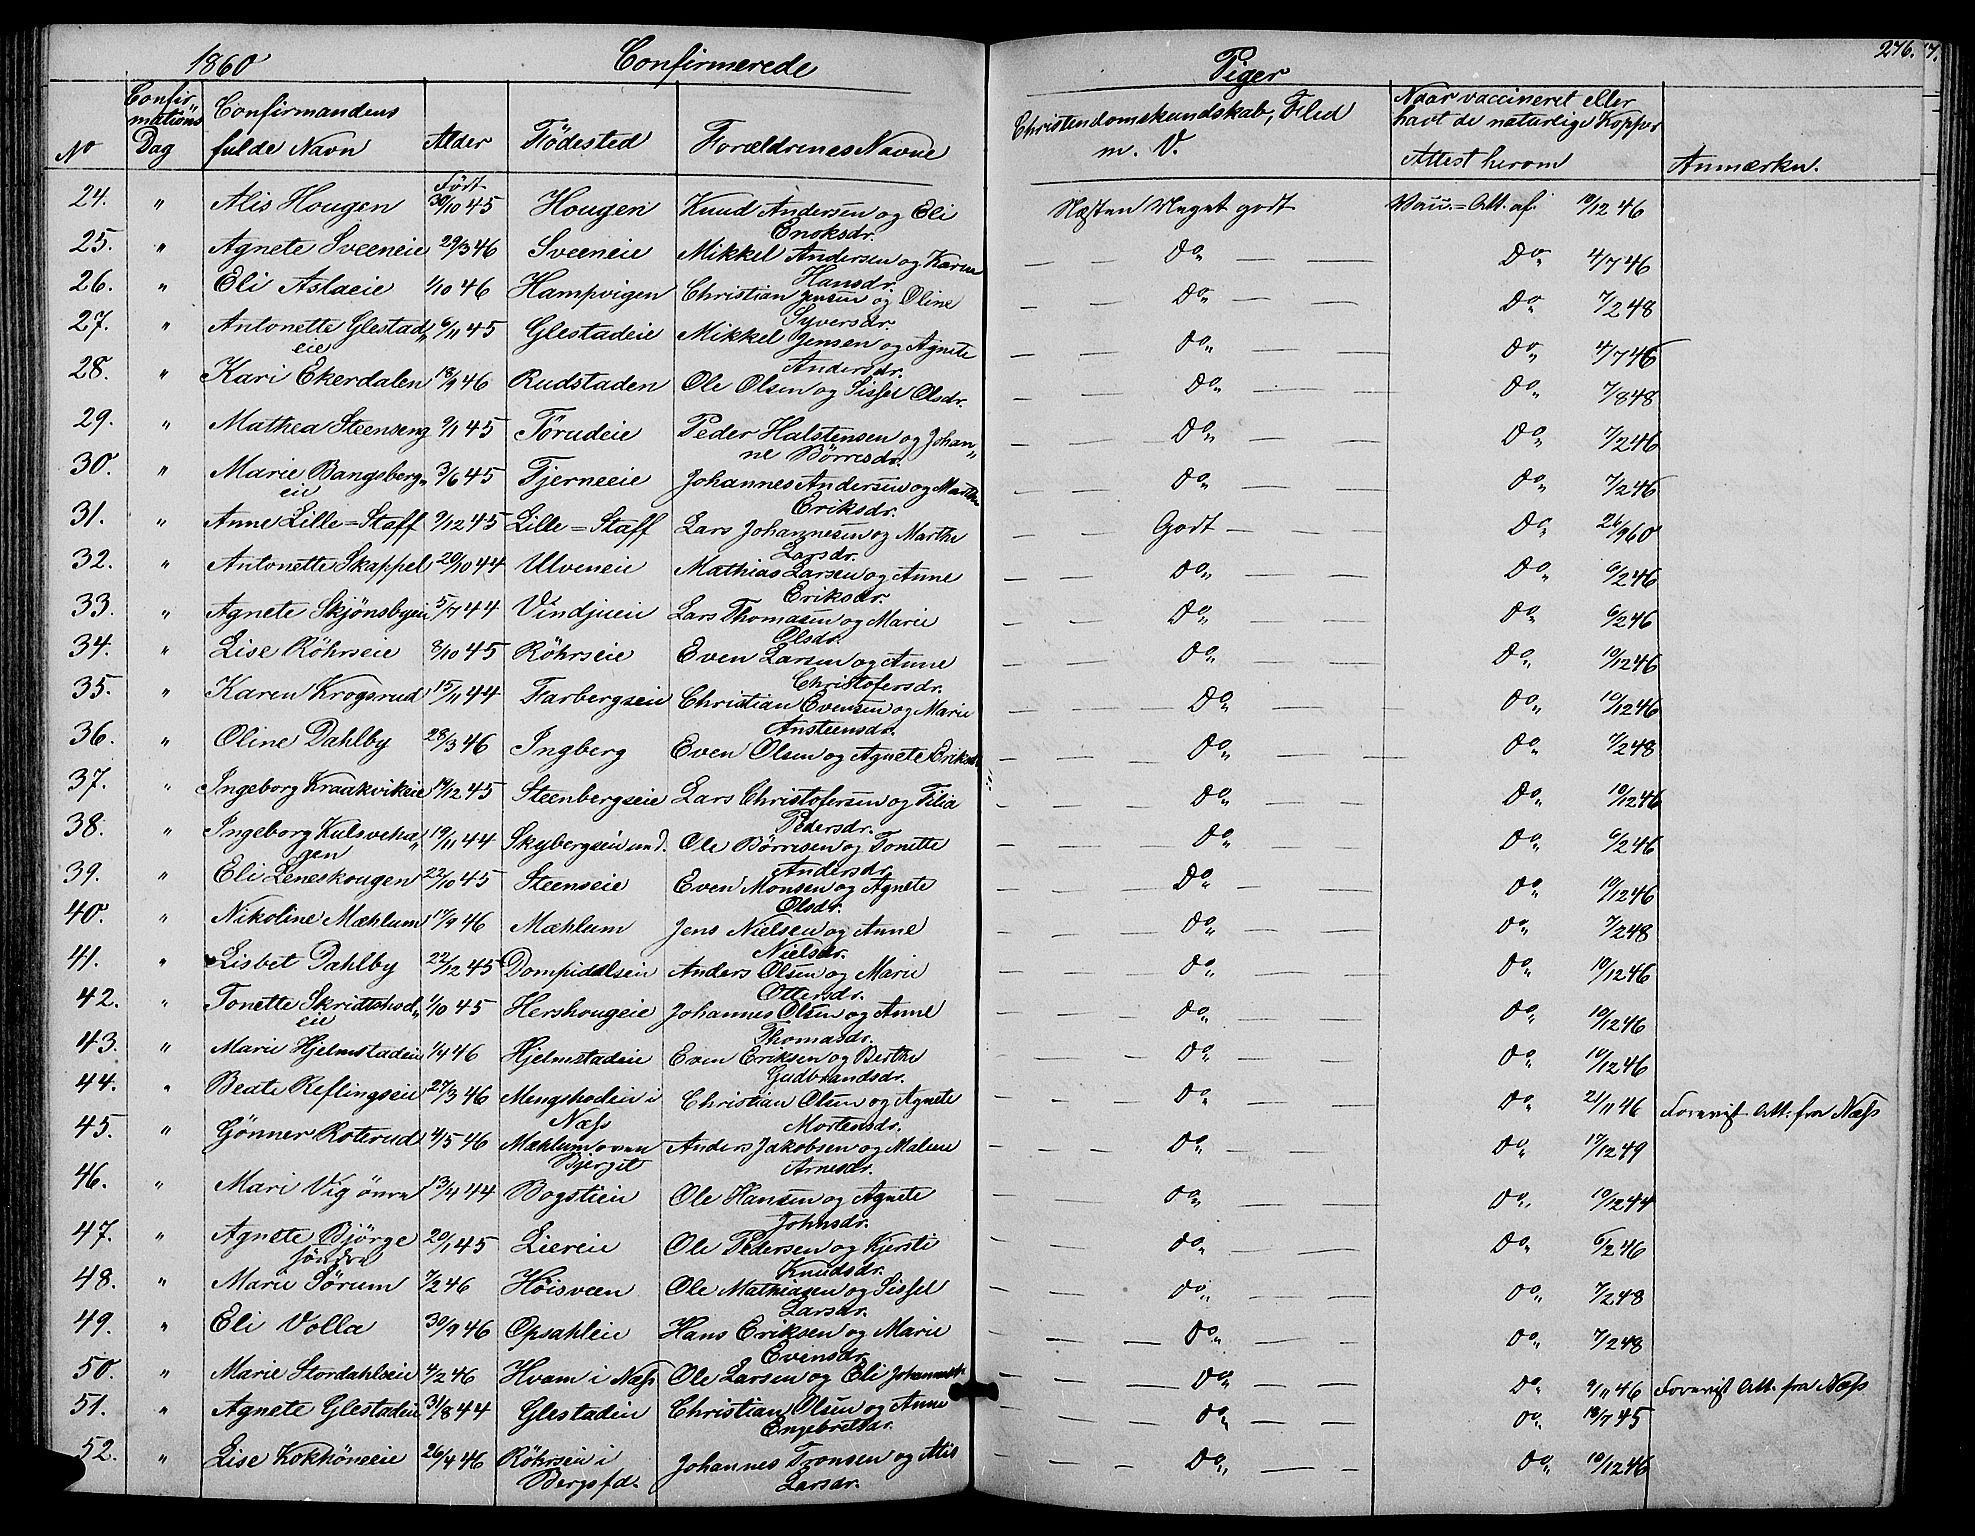 1860 Confirmerede Piger 276.
No Confirmations Dag Confirmandens fulde Navn Alder Födested Forældrenes Navne Christendomskundskab, Flid m. V. Naar vaccineret eller havt de naturlige Kopper Attest herom Anmærkn.
24. " Alis Hougen Födt 30/10 45 Hougen Knud Andersen og Eli Enoksdr. Næsten Meget godt Vacc.=Att. af. 10/12 46
25. " Agnete Sveeneie 29/3 46 Sveeneie Mikkel Andersen og Karen Hansdr. — — Do — — Do 4/7 46
26. " Eli Aslaeie 1/10 46 Hampvigen Christian Jensen og Oline Syversdr. — — Do — — Do 7/2 48
27. " Antonette Glestadeie 6/11 45 Glestadeie Mikkel Jensen og Agnete Andersdr. — — Do — — Do 4/7 46
28. " Kari Ekerdalen 18/9 46 Rudstaden Ole Olsen og Sissel Olsdr. — — Do — — Do 7/8 48
29. " Mathea Steenseng 9/1 45 Törudeie Peder Halstensen og Johanne Börresdr. — — Do — — Do 7/2 46
30. " Marie Bangsbergeie 3/6 45 Tjerneeie Johannes Andersen og Marthe Eriksdr. — — Do — — Do 7/2 46
31. " Anne Lille=Staff 9/12 45 Lille=Staff Lars Johannesen og Marthe Larsdr. — — Godt — — Do 26/9 60
32. " Antonette Skappel 20/10 44 Ulveneie Mathias Larsen og Anne Eriksdr. — — Do — — Do 6/2 46
33. " Agnete Skjönsbyeie 5/7 44 Vindjueie Lars Thomasen og Marie Olsdr. — — Do — — Do 6/2 46
34. " Lise Röhrseie 8/10 45 Röhrseie Even Larsen og Anne Christofersdr. — — Do — — Do 10/12 46
35. " Karen Krogsrud 15/11 44 Farbergseie Christian Evensen og Marie Ansteensdr. — — Do — — Do 10/12 46
36. " Oline Dahlby 28/3 46 Ingberg Even Olsen og Agnete Eriksdr — — Do — — Do 7/2 48
37. " Ingeborg Kraakvikeie 19/12 45 Steenbergseie Lars Christofersen og Filia Pedersdr. — — Do — — Do 10/12 46
38. " Ingeborg Kulsvehagen 19/11 44 Skybergseie Ole Börresen og Tonette Andersdr. — — Do — — Do 6/2 46
39. " Eli Leneskougen 22/10 45 Steenseie Even Monsen og Agnete Olsdr. — — Do — — Do 10/12 46
40. " Nikoline Mæhlum 17/9 46 Mæhlum Jens Nielsen og Anne Nielsdr. — — Do — — Do 7/2 48
41. " Lisbet Dahlby 22/12 45 Dompidalseie Anders Olsen og Marie Ottersdr. — — Do — — Do 10/12 46
42. " Tonette Skridtshodeie 1/10 45 Hershougeie Johannes Olsen og Anne Thomasdr. — — Do — — Do 10/12 46
43. " Marie Hjelmstadeie 1/4 46 Hjelmstadeie Even Eriksen og Berthe Gudbrandsdr. — — Do — — Do 10/12 46
44. " Beate Reflingseie 27/3 46 Mengshodeie i Næss Christian Olsen og Agnete Mortensdr. — — Do — — Do 21/11 46 Forevist Att. fra Næss
45. " Gönner Roterud 4/5 46 Mæhlum oven Bjerget Anders Jakobsen og Malene Arnesdr. — — Do — — Do 17/12 49
46. " Mari Vig övre 13/4 44 Bogstieie Ole Hansen og Agnete Johnsdr. — — Do — — Do 10/12 44
47. " Agnete Bjørge söndre 20/1 45 Liereie Ole Pedersen og Kjersti Knudsdr. — — Do — — Do 6/2 46
48. " Marie Sörum 7/2 46 Höisveen Ole Mathiasen og Sissel Larsdr. — — Do — — Do 7/2 48
49. " Eli Volla 30/9 46 Opsahleie Hans Eriksen og Marie Evensdr. — — Do — — Do 7/2 48
50. " Marie Stordahlseie 4/2 46 Hvam i Næss Ole Larsen og Eli Johannesdr — — Do — — Do 9/11 46 Forevist Att. fra Næss
51. " Agnete Glestadeie 31/8 44 Glestadeie Christian Olsen og Anne Engebretsdr. — — Do — — Do 18/7 45
52. " Lise Kokhöneeie 26/4 46 Röhrseie i Bergsfd. Johannes Tronsen og Alis Larsdr. — — Do — — Do 10/12 46